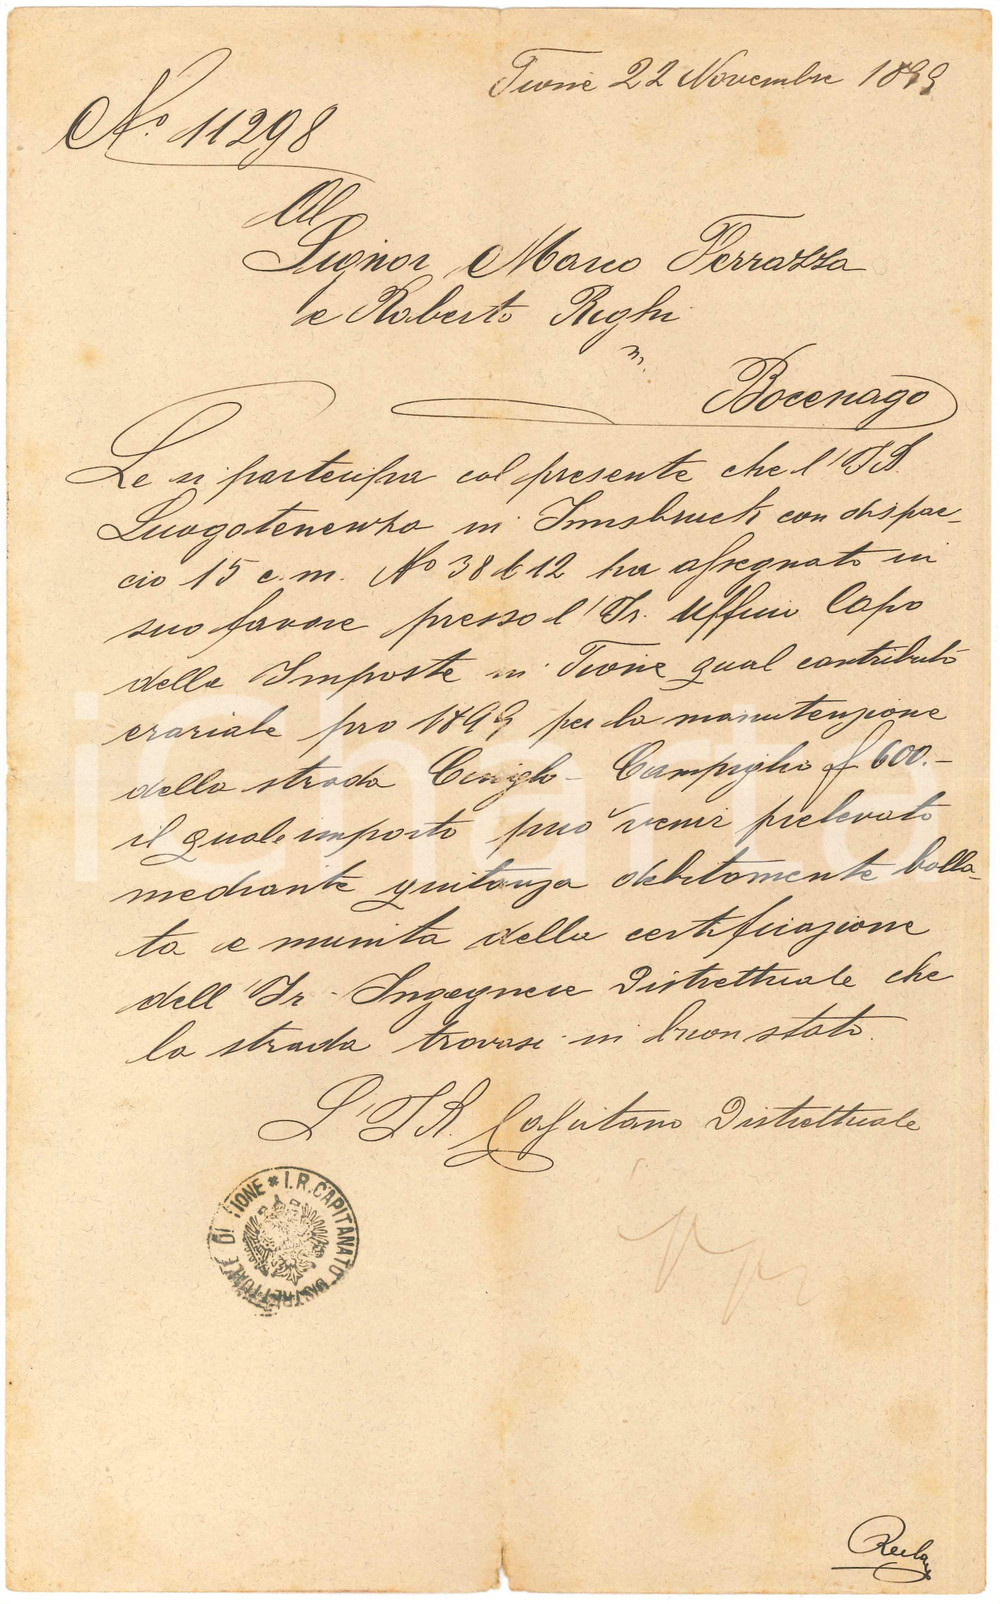 Tione 22 Novembre 1899
No. 11298
Al
Signor Marco Ferrazza
e Roberto Righi
in
Bocenago
Le si partecipa col presente che l'I R.
Luogotenenza in Innsbruck con dispac-
cio 15 c. m. No 38612 ha assegnato in
suo favore presso l'Ir. Ufficio Capo
delle Imposte in Tione qual contributo
erariale pro 1899 per la manutenzione
della strada Campiglio f 600.-
il quale importo può venir prelevato
mediante quitanza debitamente bolla-
ta e munita della certificazione
dell'Ir. Ingegnere Distrettuale che
la strada trovasi in buon stato.
L'I R. Capitano Distrettuale
* I. R. CAPITANATO DISTRETTUALE DI TIONE
iCharta